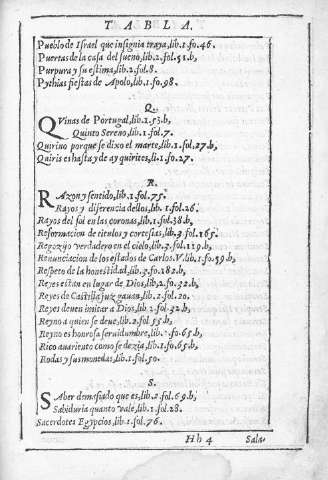 TABLA.
Pueblo de Israel que insignia traya, lib. 1. fo. 46.
Puertas de la casa del sueño, lib. 2. fol. 51. b,
Purpura y su estima, lib. 2. fol. 8.
Pythias fiestas de Apolo, lib. 1. fo. 98.
Q.
QVinas de Portugal, lib. 1. 53. b,
Quinto Sereno, lib. 1. fol. 7.
Quirino porque se dixo el marte, lib. 1. fol. 27. b,
Quiris es hasta y de ay quirites, li. 1. fo. 27.
R.
RAzon y sentido, lib. 1. fol. 75.
Rayos y diferencia dellos, lib. 1. fo. 26.
Rayos del sol en las coronas, lib. 1. fol. 38. b,
Reformacion de titulos y cortesias, lib. 3. fol. 165.
Regozijo verdadero en el cielo, lib. 3. fol. 119. b,
Renunciacion de los estados de Carlos. V. lib. 1. fo. 59. b,
Respeto de la honestidad, lib. 3. fo. 182. b,
Reyes estan en lugar de Dios, lib, 2. fo. 32. b,
Reyes de Castilla juzgauan, lib. 2. fol. 20.
Reyes deuen imitar a Dios, lib. 2. fol. 32. b,
Reyno a quien se deue, lib. 2. fol. 55. b,
Reyno es honrosa seruidumbre, lib. 2. fo. 65. b,
Rico auariento como se dezia, lib. 1. fo. 65. b,
Rodas y sus monedas, lib. 1. fol. 50.
S.
SAber demasiado que es, lib. 2. fol. 69. b,
Sabiduria quanto vale, lib. 1. fol. 28.
Sacerdotes Egypcios, lib. 1. fol. 76.
Hh 4 Sala-